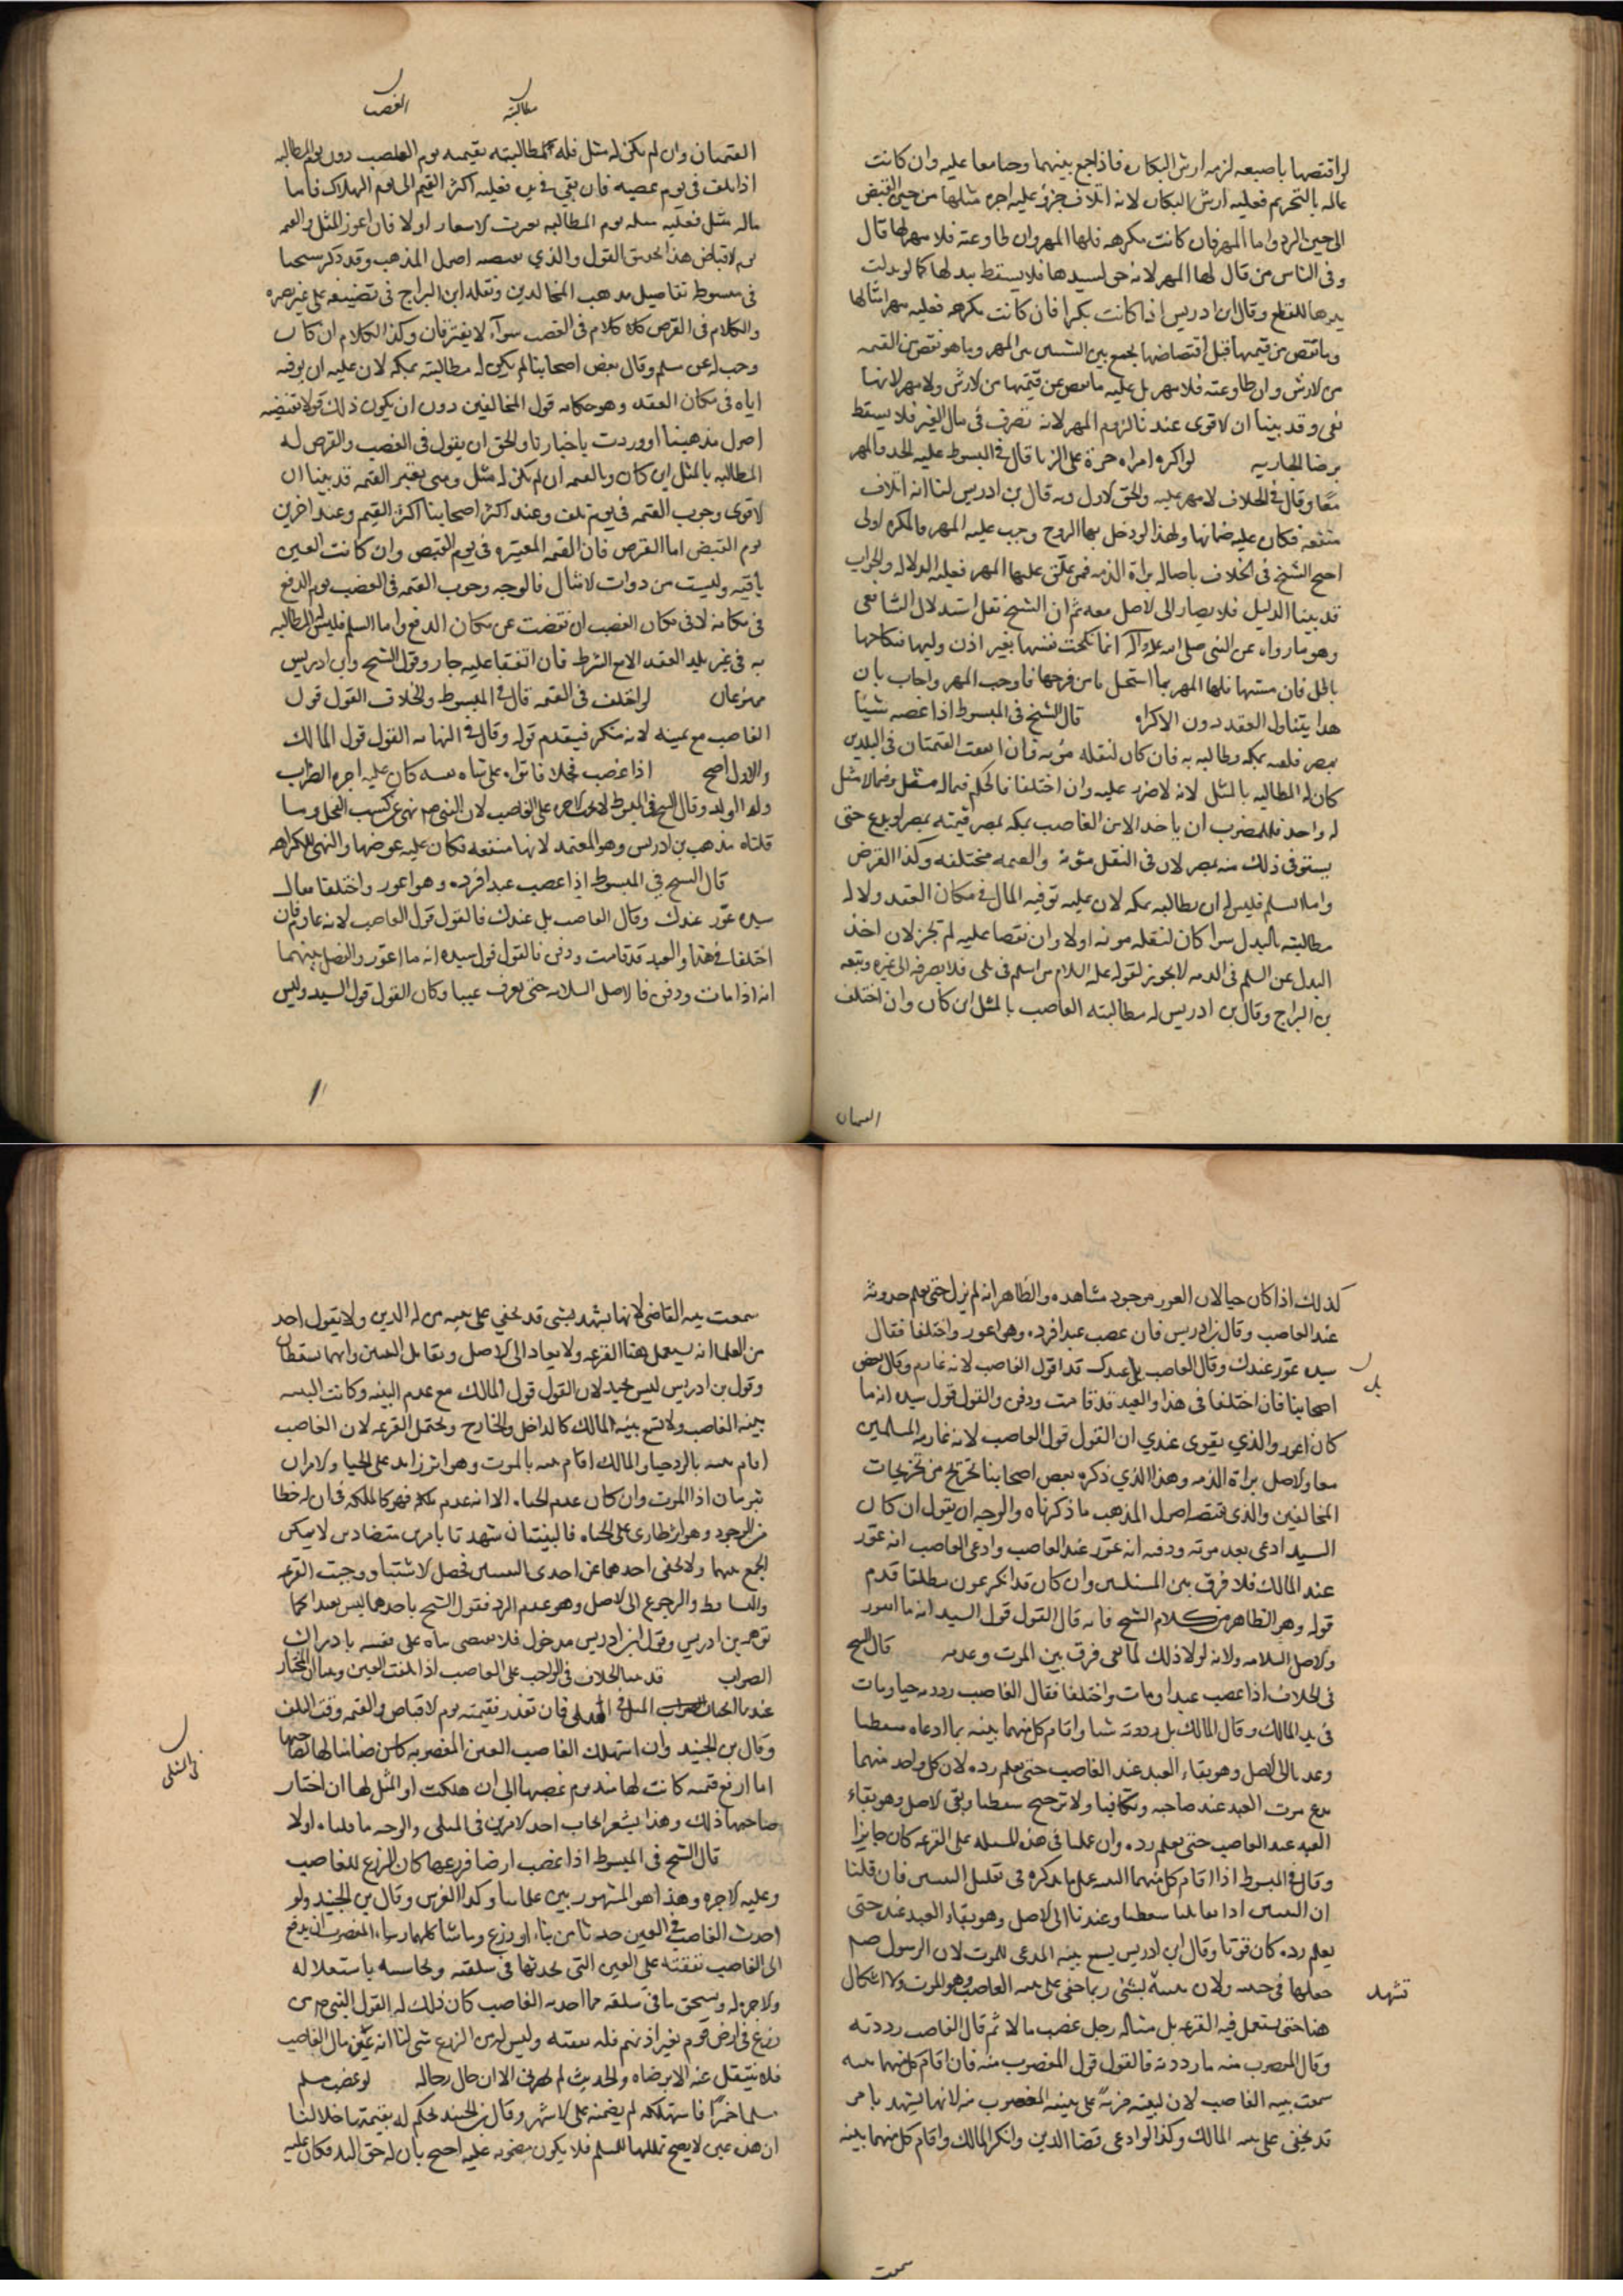 لو اقتضها باصبعه لزمه ارش البكاره فاذا جمع بينهما وجامعا عليه وان كانت
عالمه بالتحريم فعليه ارش البكاره لانه اتلاف جزؤ وعليه اجره مثلها من حين القبض
الى حين الرد واما المهر فان كانت مكرهه فلها المهر وان طاوعته فلا مهر لها قال
وفى الناس من قال لها المهر لانه حق لسيدها فلا يسقط ببدلها كما لو بدلت
يدها للقطع وقال ابن ادريس اذا كانت بكرا فان كانت مكرهه فعليه مهر امثالها
وما نقص من قيمتها قبل اقتضاضها يجمع بين الشيئين المهر وما هو نقص من القيمه
من الارش وان طاوعته فلا مهر بل عليه ما نقص من قيمتها من الارش ولا مهر لانها
بغى وقد بينا ان الاقوى عندنا لزوم المهر لانه تصرف فى مال الغير فلا يسقط
برضا الجاريه لو اكره امراه حرة على الزنا قال فى المبسوط عليه الحد والمهر
معا وقال فى الخلاف لا مهر عليه والحق الاول وبه قال بن ادريس لنا انه اتلاف
منفعه فكان عليه ضمانها ولهذا لو دخل بها الزوج وجب عليه المهر فالمكره اولى
احتج الشيخ فى الخلاف باصاله براة الذمه فمن علق عليها المهر فعليه الدلاله والجواب
قد بينا الدليل فلا يصار الى الاصل معه ثم ان الشيخ نقل استدلال الشافعى
وهو ما رواه عن النبى صلى الله عليه واله انما نكحت نفسها بغير اذن وليها فنكاحها
باطل فان مسها فلها المهر بما استحل من فرجها فاوجب المهر واجاب بان
هذا يتناول العقد دون الاكراه قال الشيخ فى المبسوط اذا غصبه شيئا
بمصر فلقيه بمكه وطالبه به فان كان لنقله مؤنه فان اتفقت القيمتان فى البلدين
كان له المطالبه بالمثل لانه لا ضرر عليه وان اختلفا فالحكم فيما له مثل وفيما لا مثل
له واحد فللمغصوب ان ياخذ من الغاصب بمكه بمصر قيمته بمصر او يدع حتى
يستوفى ذلك منه بمصر لان فى النقل مئونه والقيمه مختلفه وكذا القرض
واما السلم فليس له ان يطالبه بمكه لان عليه توفيه المال فى مكان العقد ولا له
مطالبته بالبدل سوا كان لنقله مونه اولا وان تقصا عليه لم تجز لان اخذ
البدل عن السلم فى الذمه لا يجوز لقوله عليه السلام من اسلم فى شى فلا يصرفه الى غيره وتبعه
بن البراج وقال بن ادريس له مطالبته الغاصب بالمثل اين كان وان اختلف
القيمتان
مطالبته الغصب
القيمتان وان لم يكن له مثل فله مطالبته بقيمه يوم الغصب دون يوم المطالبه
اذا تلف فى يوم غصبه فان بقى فى يده فعليه اكثر القيم الى يوم الهلاك فاما
ماله مثل فعليه مثله يوم المطالبه تغيرت الاسعار اولا فان اعوز المثل والقيمه
يوم الاقباض هذا تحقيق القول والذى يقتضيه اصول المذهب وقد ذكر شيخنا
فى مبسوطه تفاصيل مذهب المخالفين ونقله ابن البراج فى تصنيفه على غير بصيره
والكلام فى القرض كالكلام فى الغصب سوآء لا يفترقان وكذا الكلام ان كان
وجب له عن سلم وقال بعض اصحابنا لم يكن له مطالبته بمكه لان عليه ان يوفيه
اياه فى مكان العقد وهو حكايه قول المخالفين دون ان يكون ذلك قولا تقتضيه
اصول مذهبنا او وردت به اخبارنا والحق ان يقول فى الغصب والقرض له
المطالبه بالمثل اين كان وبالقيمه ان لم يكن له مثل ومتى يعتبر القيمه قد بينا ان
الاقوى وجوب القيمه فى يوم تلف وعند اكثر اصحابنا اكثر القيم وعند اخرين
يوم القبض اما القرض فان القيمه المعتبره فى يوم القبض وان كانت العين
باقيه وليست من ذوات الامثال فالوجه وجوب القيمه فى الغصب يوم الدفع
فى مكانه لا فى مكان الغصب ان نقصت عن مكان الدفع واما السلم فليس له المطالبه
به فى غير بلد العقد الا مع الشرط فان اتفقا عليه جاز وقول الشيخ وابن ادريس
ممنوعان لو اختلف فى القيمه قال فى المبسوط والخلاف القول قول
الغاصب مع يمينه لانه منكر فيقدم قوله وقال فى النهايه القول قول المالك
والاول اصح اذا غصب فحلا فانزاه على شاه نفسه كان عليه اجره الضراب
وله الولد وقال الشيخ فى المبسوط لا اجره على الغاصب لان النبى صم نهى عن كسب الفحل وما
قلناه مذهب بن ادريس وهو المعتمد لانها منفعه فكان عليه عوضها والنهى للكراهه
قال الشيخ فى المبسوط اذا غصب عبدا فرده وهو اعور واختلفا فقال
سيده عور عندك وقال الغاصب بل عندك فالقول قول الغاصب لانه غارم فان
اختلفا فى هذا والعبد قد مات ودفن فالقول قول سيده انه ما اعور والفصل بينهما
انه اذا مات ودفن فالاصل السلامه حتى يعرف عيبا وكان القول قول السيد وليس
كذلك اذا كان حيا لان العور موجود مشاهده والظاهر انه لم يزل حتى يعلم حدوثه
عند الغاصب وقال بن ادريس فان غصب عبدا فرده وهو اعور واختلفا فقال
سيده عور عندك وقال الغاصب بل عندك قدم قول الغاصب لانه غارم وقال بعض
بل
اصحابنا فان اختلفا فى هذا والعبد قد مات ودفن والقول قول سيده انه ما
كان اعور والذي يقوى عندي ان القول قول الغاصب لانه غارم فى المسئلتين
معا والاصل براة الذمه وهذا الذي ذكره بعض اصحابنا تخريج من تخريجات
المخالفين والذى تقتضيه اصول المذهب ما ذكرناه والوجه ان يقول ان كان
السيد ادعى بعد موته ودفنه انه عور عند الغاصب وادعى الغاصب انه عور
عند المالك فلا فرق بين المسئلتين وان كان قد انكر عوره مطلقا قدم
قوله وهو الظاهر من كلام الشيخ فانه قال القول قول السيد انه ما اعور
والاصل السلامه ولانه لولا ذلك لما بقى فرق بين الموت وعدمه قال الشيخ
فى الخلاف اذا غصب عبدا ومات واختلفا فقال الغاصب رددته حيا ومات
فى يد المالك وقال المالك بل رددته ميتا واقام كل منهما بينه بما ادعاه سقطتا
وعدنا الى الاصل وهو بقاء العبد عند الغاصب حتى يعلم رده لان كل واحد منهما
يدعى موت العبد عند صاحبه وتكافيا ولا ترجيح سقطتا وبقى الاصل وهو بقاء
العبد عند الغاصب حتى يعلم رده وان عملنا فى هذه المسئله على القرعه كان جايزا
وقال فى المبسوط اذا اقام كل منهما البينه عمل بما يذكره فى تقابل البينتين فان قلنا
ان البينتين اذا تقابلتا سقطتا وعدنا الى الاصل وهو بقاء العبد عنده حتى
يعلم رده كان قويا وقال ابن ادريس يسمع بينه المدعى للموت لان الرسول صم
جعلها فى جنبته ولان بينته تشهد بشئ ربما خفى على بينه الغاصب وهو الموت ولا اشكال
تشهد
هنا حتى يستعمل فيه القرعه بل مثاله رجل غصب مالا ثم قال الغاصب رددته
وقال المغصوب منه ما رددته فالقول قول المغصوب منه فان اقام كل منهما بينه
سمعت بينه الغاصب لان لبينته مزية على بينه المغصوب منه لانها تشهد بامر
قد يخفى على بينه المالك وكذا لو ادعى قضا الدين وانكر المالك واقام كل منهما بينه
سمعت
سمعت بينه القاضى لانها تشهد بشى قد يخفى على بينه من له الدين ولا يقول احد
من العلما انه يستعمل هنا القرعه ولا يعاد الى الاصل وتقابل البينتين وانهما تسقطان
وقول بن ادريس ليس بجيد لان القول قول المالك مع عدم البينه وكانت البينه
بينه الغاصب ولا تسمع بينه المالك كالداخل والخارج ويحتمل القرعه لان الغاصب
اقام بينه بالرد حيا والمالك اقام بينه بالموت وهو اثر زايد على الحيا والامران
ثبوتيان اذا الموت وان كان عدم الحياه الا انه عدم ملكه فهو كالملكه فى ان له حظا
من الوجود وهو امر طارى على الحياه فالبينتان شهدتا بامرين متضادين لا يمكن
الجمع بينهما ولا يخفى احدهما عن احدى البينتين فحصل الاشتباه ووجبت القرعه
والتساقط والرجوع الى الاصل وهو عدم الرد فقول الشيخ باحدهما ليس بعيدا كما
توهمه بن ادريس وقول ابن ادريس مدخول فلا يقضى بناه على نفسه بادراك
الصواب قد مضى الخلاف فى الواجب على الغاصب اذا تلفت العين وبينا ان المختار
عندنا ايجاب المثل فى المثلى فان تعذر فقيمته يوم الاقباض والقيمه وقت التلف
فى المثلى
وقال بن الجنيد وان استهلك الغاصب العين المغصوبه كان ضامنا لها لصاحبها
اما ارفع قيمه كانت لها منذ يوم غصبها الى ان هلكت او المثل لها ان اختار
صاحبها ذلك وهذا يشعر بايجاب احد الامرين فى المثلى والوجه ما قلناه اولا
قال الشيخ فى المبسوط اذا غصب ارضا فزرعها كان الزرع للغاصب
وعليه الاجره وهذا هو المشهور بين علمائنا وكذا الغرس وقال بن الجنيد ولو
احدث الغاصب فى العين حدثا من بناء او زرع وما شاكلهما وشاء المغصوب ان يدفع
الى الغاصب نفقته على العين التى يحدثها فى سلعته ويحاسبه باستعلاله
ولا اجره له ويستحق ما فى سلعته مما احدثه الغاصب كان ذلك له القول النبى صم من
زرع فى ارض قوم بغير اذنهم فله نفقته وليس له من الزرع شى لنا انه عين مال الغاصب
فلا ينتقل عنه الا برضاه والحديث لم يعرف الان حال رجاله لو غصب مسلم
مسلما خمرا فاستهلكه لم يضمنه على الاشهر وقال بن الجنيد يحكم له بقيمتها خلا لنا
ان هذه عين لا يصح تملكها للمسلم فلا يكون مضمونه عليه احتج بان له حق اليد فكان عليه